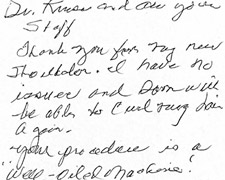 Dr. Kruse and all your
Staff
Thank you for my new
Shoulder. I have no
issues and soon will
be able to Curl my hair
Again.
Your procedure is a
"Well-Oiled Machine".